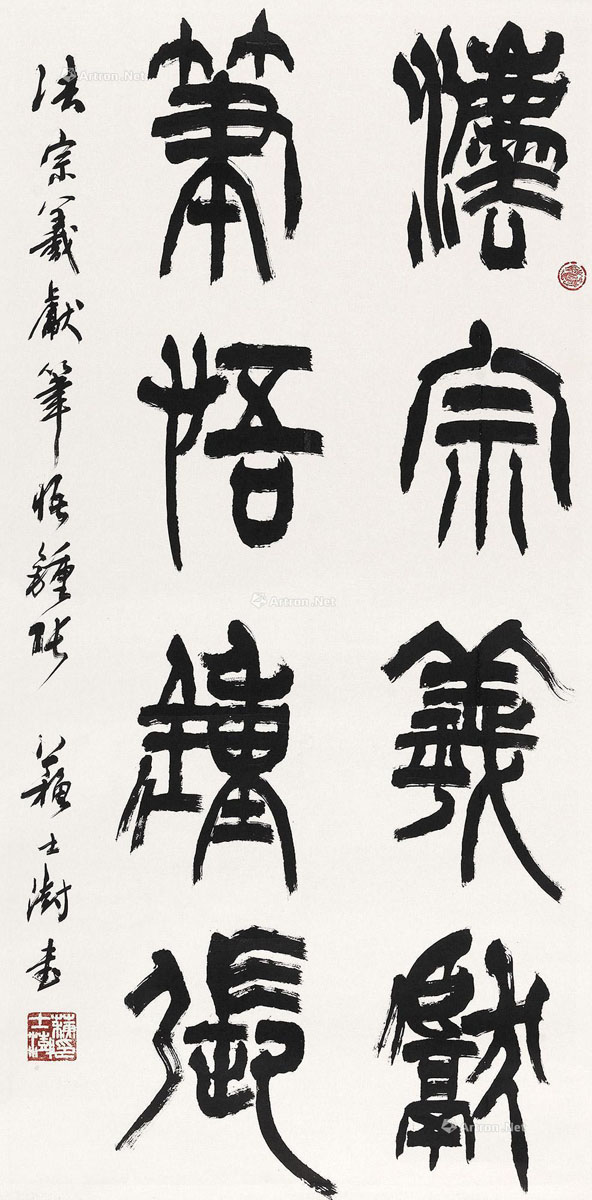 灋宗羲獻
筆悟鍾張
法宗羲獻筆悟鍾張 蘇士澍書
蘇士澍印
Artron.Net
Artron.Net
Artron.Net